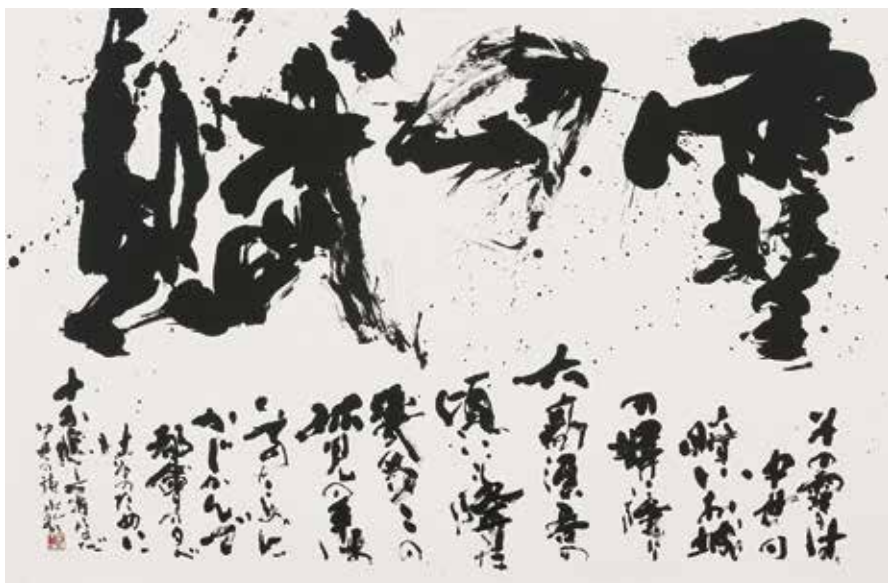 雪の賦
その雪は
中世の
暗いお城
の塀にも降り
大高源吾の
頃にも降つた
幾多々々の
孤児の手は
そのために
かじかんで
都會の夕べ
はそのために
中也の詩